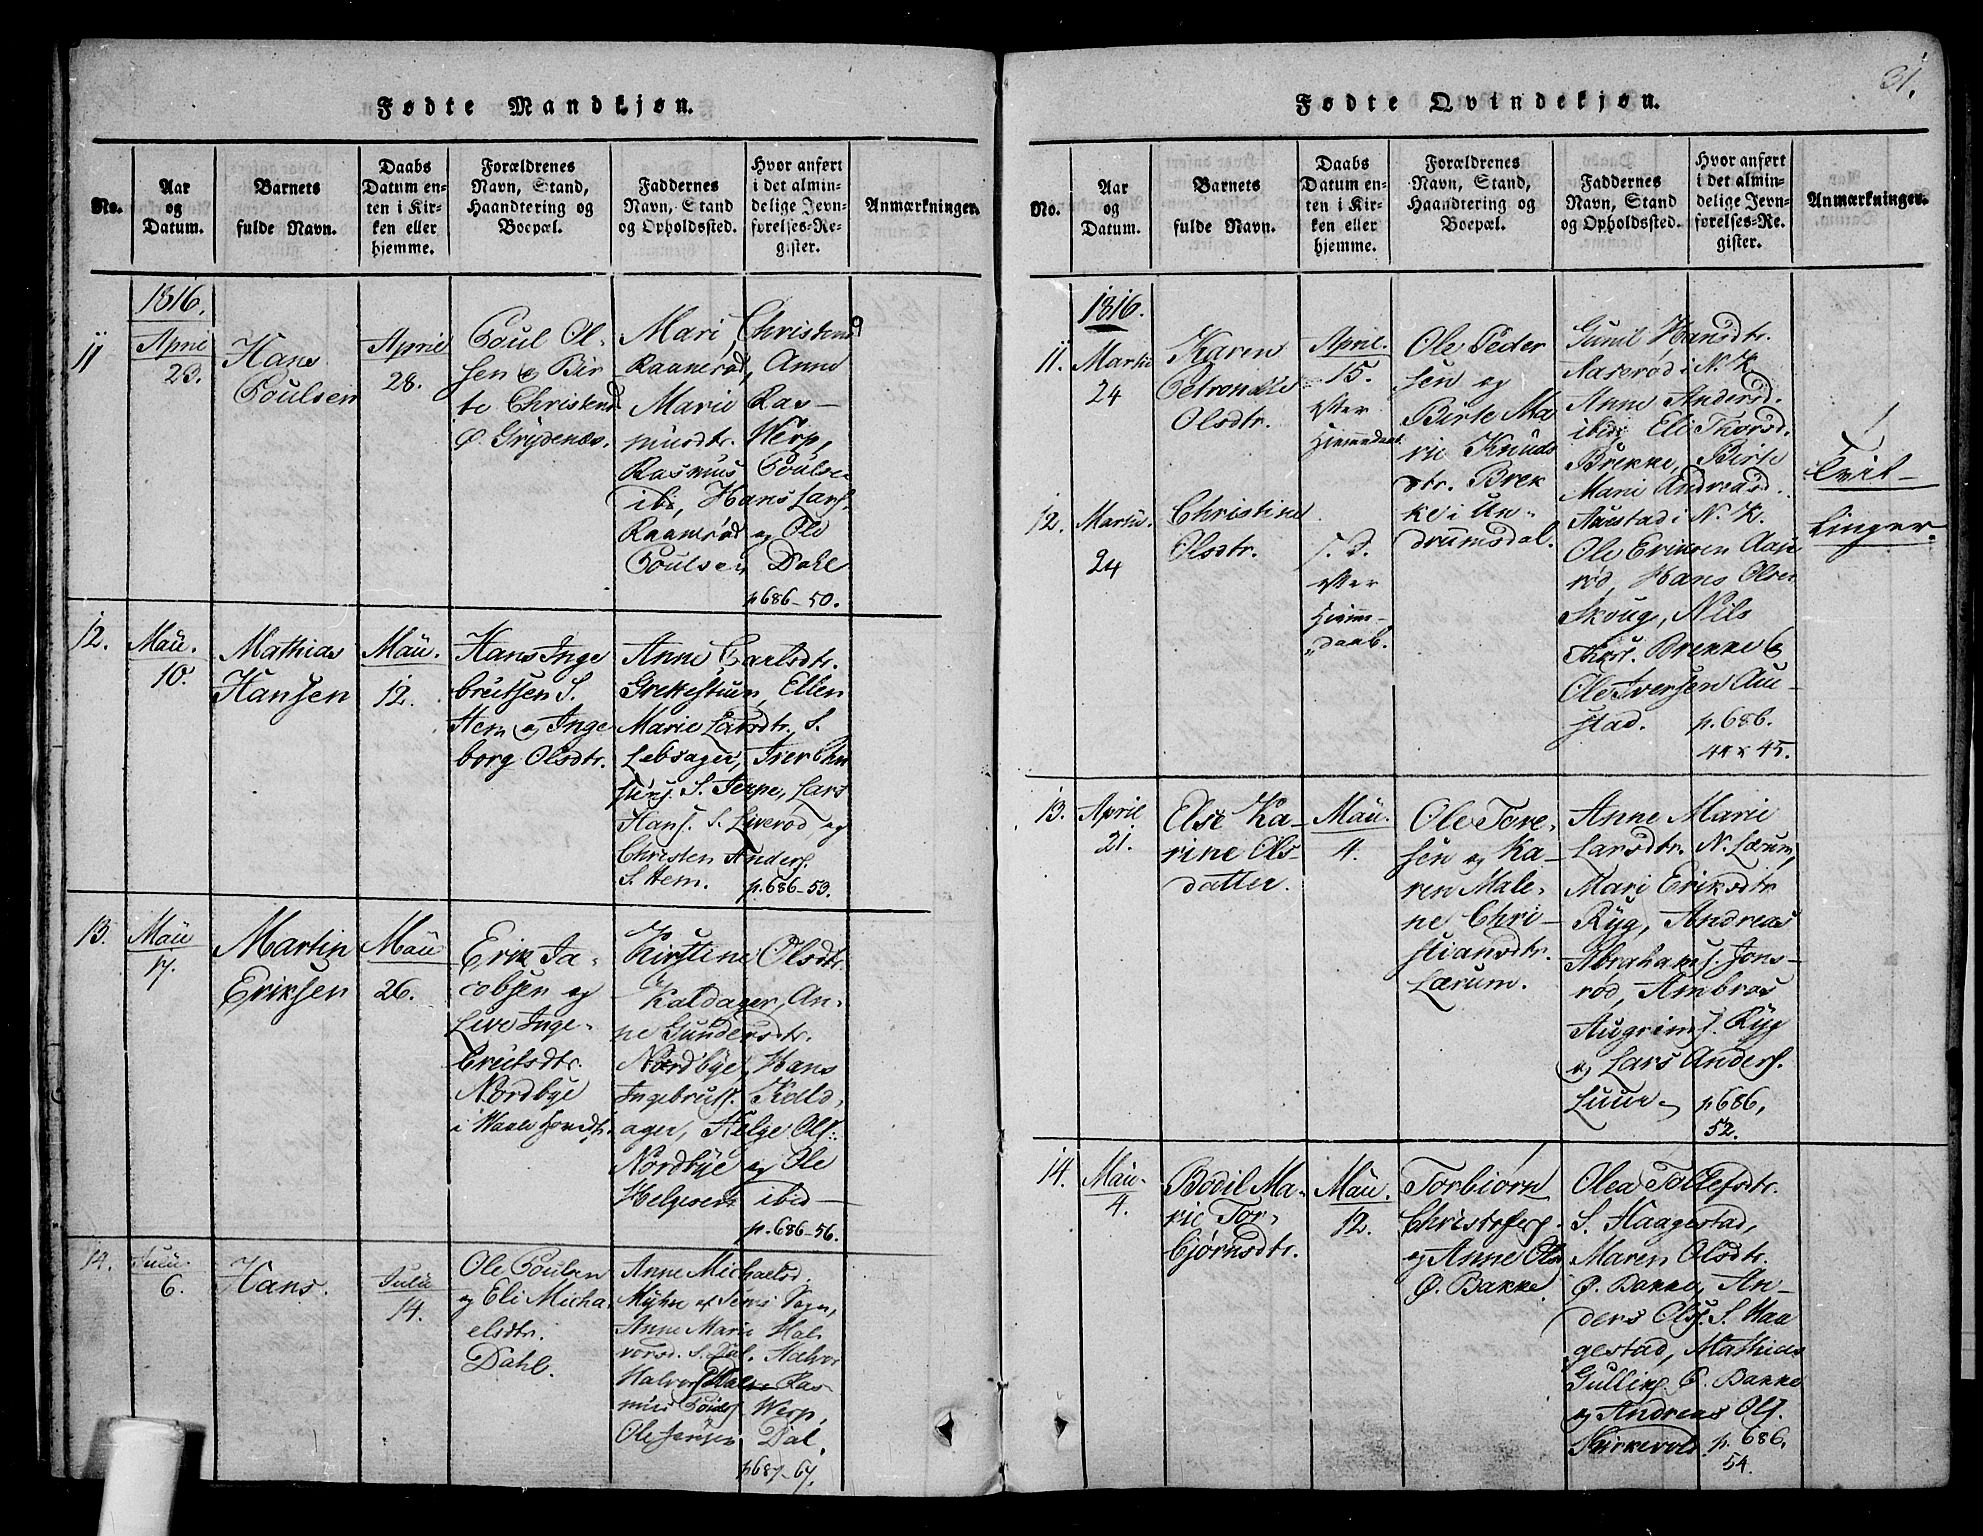 31.
Fødte Mandkjøn.
No.
Aar
og
Datum.
Barnets
fulde Navn.
Daabs
Datum en-
ten i Kir-
ken eller
hjemme.
Forældrenes
Navn, Stand,
Haandtering og
Boepæl.
Faddernes
Navn, Stand
og Opholdssted.
Hvor anført
i det almin-
delige Jevn-
førelses-Re-
gister.
Anmærkninger.
1816.
11
April
23.
Hans
Poulsen
April
28.
Poul Ol-
sen & Bir-
te Christensd
Ø. Grydenæs.
Mari Christensd
Raamerød, Anne
Marie Ras-
musdtr. Werp,
Rasmus Poulse
ibi, Hans Lars.
Raamerød og Ole
Poulsen Dahl
p 686-50.
12.
Maii.
10.
Mathias
Hansen
Maii.
12.
Hans Inge
bretsen S.
Hem og Inge
borg Olsdtr.
Anne Carlsdtr.
Grekestuen, Ellen
Marie Larsdtr. S.
Lebsager, Iver Chri
S. Jerpe, Lars
Hans. S. Liverød, og
Christen Anders.
S. Hem.
p. 686-53.
13.
Maii
17.
Martin
Eriksen
Maii
26.
Erik Ja-
cobsen og
Live Inge-
bretsdtr.
Nordbye
i
Kirstine Olsdtr.
Koldager, An-
ne Gundersdtr.
Nordbye, Hans
Ingebrets. Kold-
ager, Helge Ols.
Nordbye og Ole
Helgesen ibid-
p. 686-56.
14.
Julii
6.
Hans.
Julii
14.
Ole Poulsen
og Eli Micha
elsdtr.
Dahl.
Anne Michaelsd.
Myhre af Sems Sogn,
Anne Marie Hal
vorsd. S. Dal. Halvor
Halvors Ras-
mus Pouls. Werp,
Ole Jensen Dal.
p 687-67.
Fødte Qvindekjøn.
No.
Aar
og
Datum.
Barnets
fulde Navn.
Daabs
Datum en-
ten i Kir-
ken eller
hjemme.
Forældrenes
Navn, Stand,
Haandtering og
Boepæl.
Faddernes
Navn, Stand
og Opholdssted.
Hvor anført
i det almin-
delige Jevn-
førelses-Re-
gister.
Anmærkninger.
1816.
11.
Martii
24
Karen
Petronelle
Olsdtr.
April.
15.
efter
Hjemmedaab.
12.
Martii.
24
Christine
Olsdtr.
s. d.
efter
Hjemme-
daab.
Ole Peder
sen og
Birte Ma
rie Knuds
dtr. Brek
ke i Un-
drumsdal.
Gunil Hansdtr.
Aaserød i N. K.
Anne Andersd.
ibid, Eli Thorsd.
Brekke, Birte
Marie Andreasd.
Auestad i N. K.
Ole Eriksen Aase
rød, Hans Olsen
Skoug, Nils
Brekke &
Ole Iversen Aue-
stad.
p. 686.
44 & 45.
Tvil-
linger.
13.
April
21.
Else Ka-
rine Ols-
datter.
Maii.
4.
Ole Tore-
sen og Ka-
ren Male-
ne Chri-
stiansdtr.
Lærum.
Anne Marie
Larsdtr. N. Lærum,
Mari Eriksdtr
Ryg, Andreas
Abrahams. Jons-
rød, Ambros
Augrims. Ryg
og Lars Anders.
Luur-
p 686,
52.
14.
Maii.
4.
Bodil Ma-
rie Tor-
bjørnsdtr.
Maii.
12.
Torbiørn
Christophers.
og Anne Olsd
Ø. Bakke.
Olea Tollefsdtr.
S. Haagestad,
Maren Olsdtr.
Ø. Bakke, An-
ders Ols. S. Haa
gestad, Mathias
Gulliks. Ø. Bakke
og Andreas Ols.
Kirkevold.
p. 686.
54.